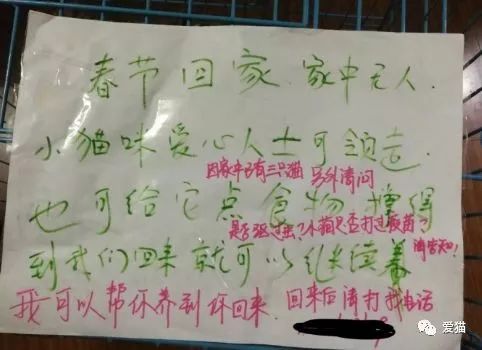 春节回家.家中无人.
小猫咪爱心人士可领走.
因家中已有三只猫 另外请问
也可给它点食物 撑得
是否驱过虫?小猫是否打过疫苗?
请告知!
到我们回来就可以继续养
我可以帮你养到你回来. 回来后请打我电话
爱猫